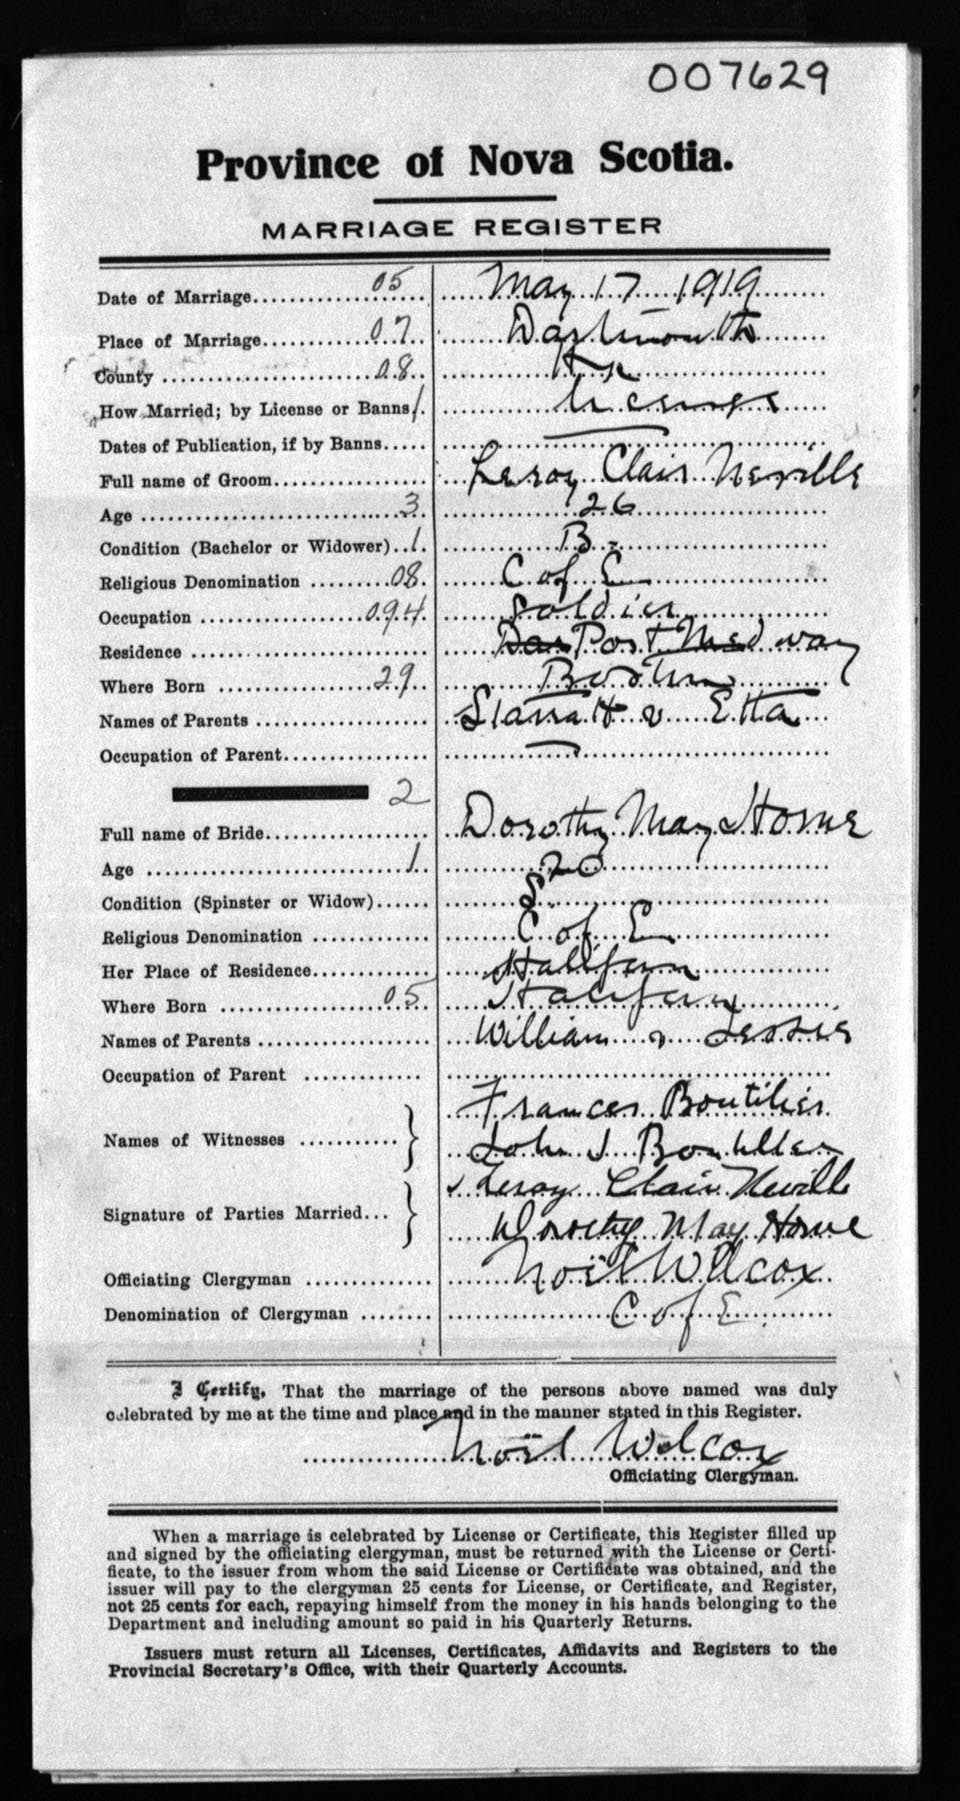 007629
Province of Nova Scotia.
MARRIAGE REGISTER
Date of Marriage 05 May 17 1919
Place of Marriage 07 Dartmouth
County 08 Hx
How Married; by License or Banns 1 License
Dates of Publication, if by Banns —
Full name of Groom Leroy Clair Neville
Age 3 26
Condition (Bachelor or Widower) 1 B.
Religious Denomination 08 C of E
Occupation 094 Soldier
Residence Dar Port Medway
Where Born 29 Boston
Names of Parents H Etta
Occupation of Parent —
2
Full name of Bride Dorothy May Horne
Age 1 20
Condition (Spinster or Widow) S.
Religious Denomination C of E
Her Place of Residence Halifax
Where Born 05 Halifax
Names of Parents William & Jessie
Occupation of Parent
Frances Boutilier
Names of Witnesses
John J Boutilier
Leroy Clair Neville
Signature of Parties Married
Dorothy May Horne
Officiating Clergyman Noël Wilcox
Denomination of Clergyman C of E.
I Certify, That the marriage of the persons above named was duly
celebrated by me at the time and place and in the manner stated in this Register.
Noël Wilcox
Officiating Clergyman.
When a marriage is celebrated by License or Certificate, this Register filled up
and signed by the officiating clergyman, must be returned with the License or Certi-
ficate, to the issuer from whom the said License or Certificate was obtained, and the
issuer will pay to the clergyman 25 cents for License, or Certificate, and Register,
not 25 cents for each, repaying himself from the money in his hands belonging to the
Department and including amount so paid in his Quarterly Returns.
Issuers must return all Licenses, Certificates, Affidavits and Registers to the
Provincial Secretary's Office, with their Quarterly Accounts.